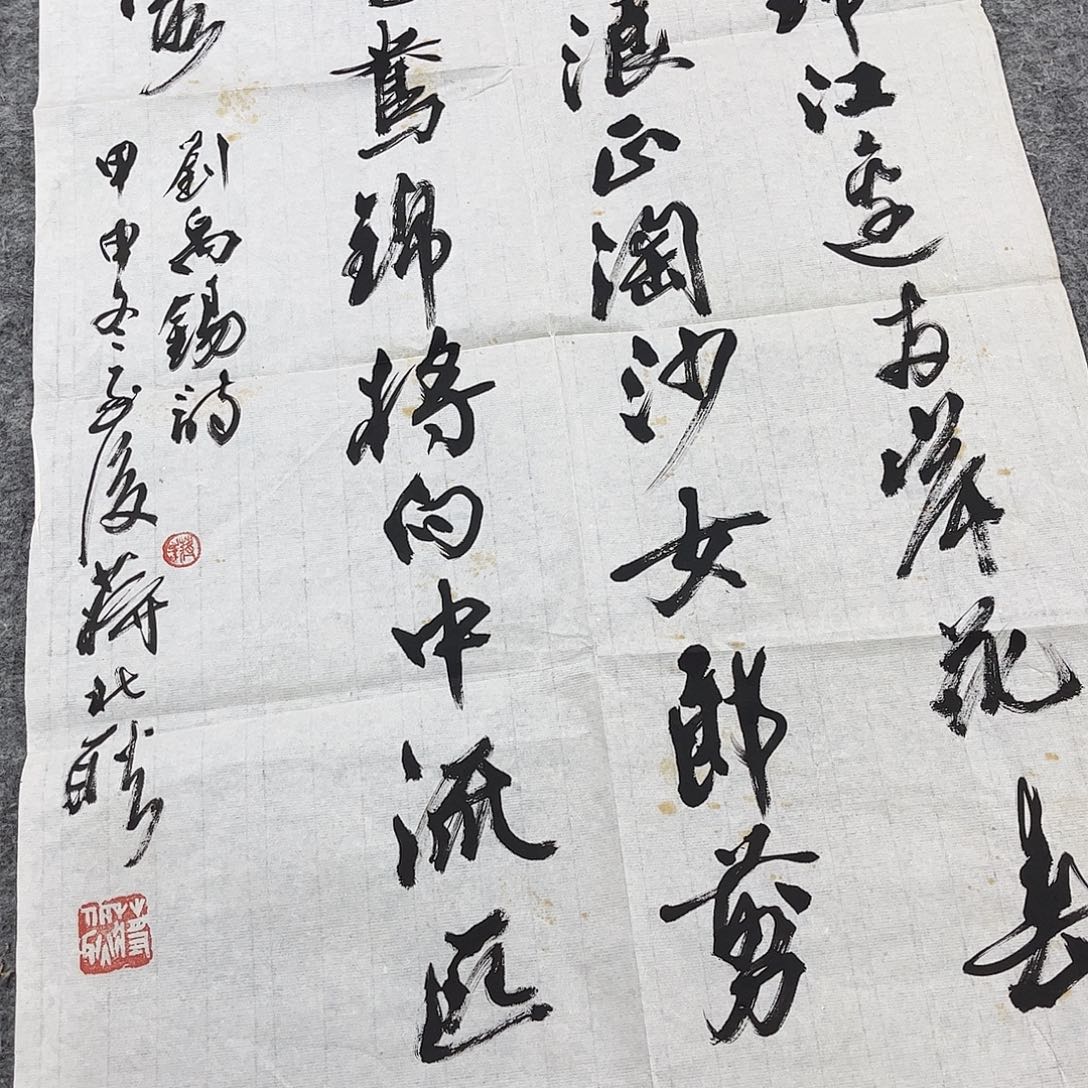 錦江邊两岸花春
浪正淘沙女郎剪
鴦錦将向中流匹
霞
劉禹錫詩
甲申冬至後蔣北